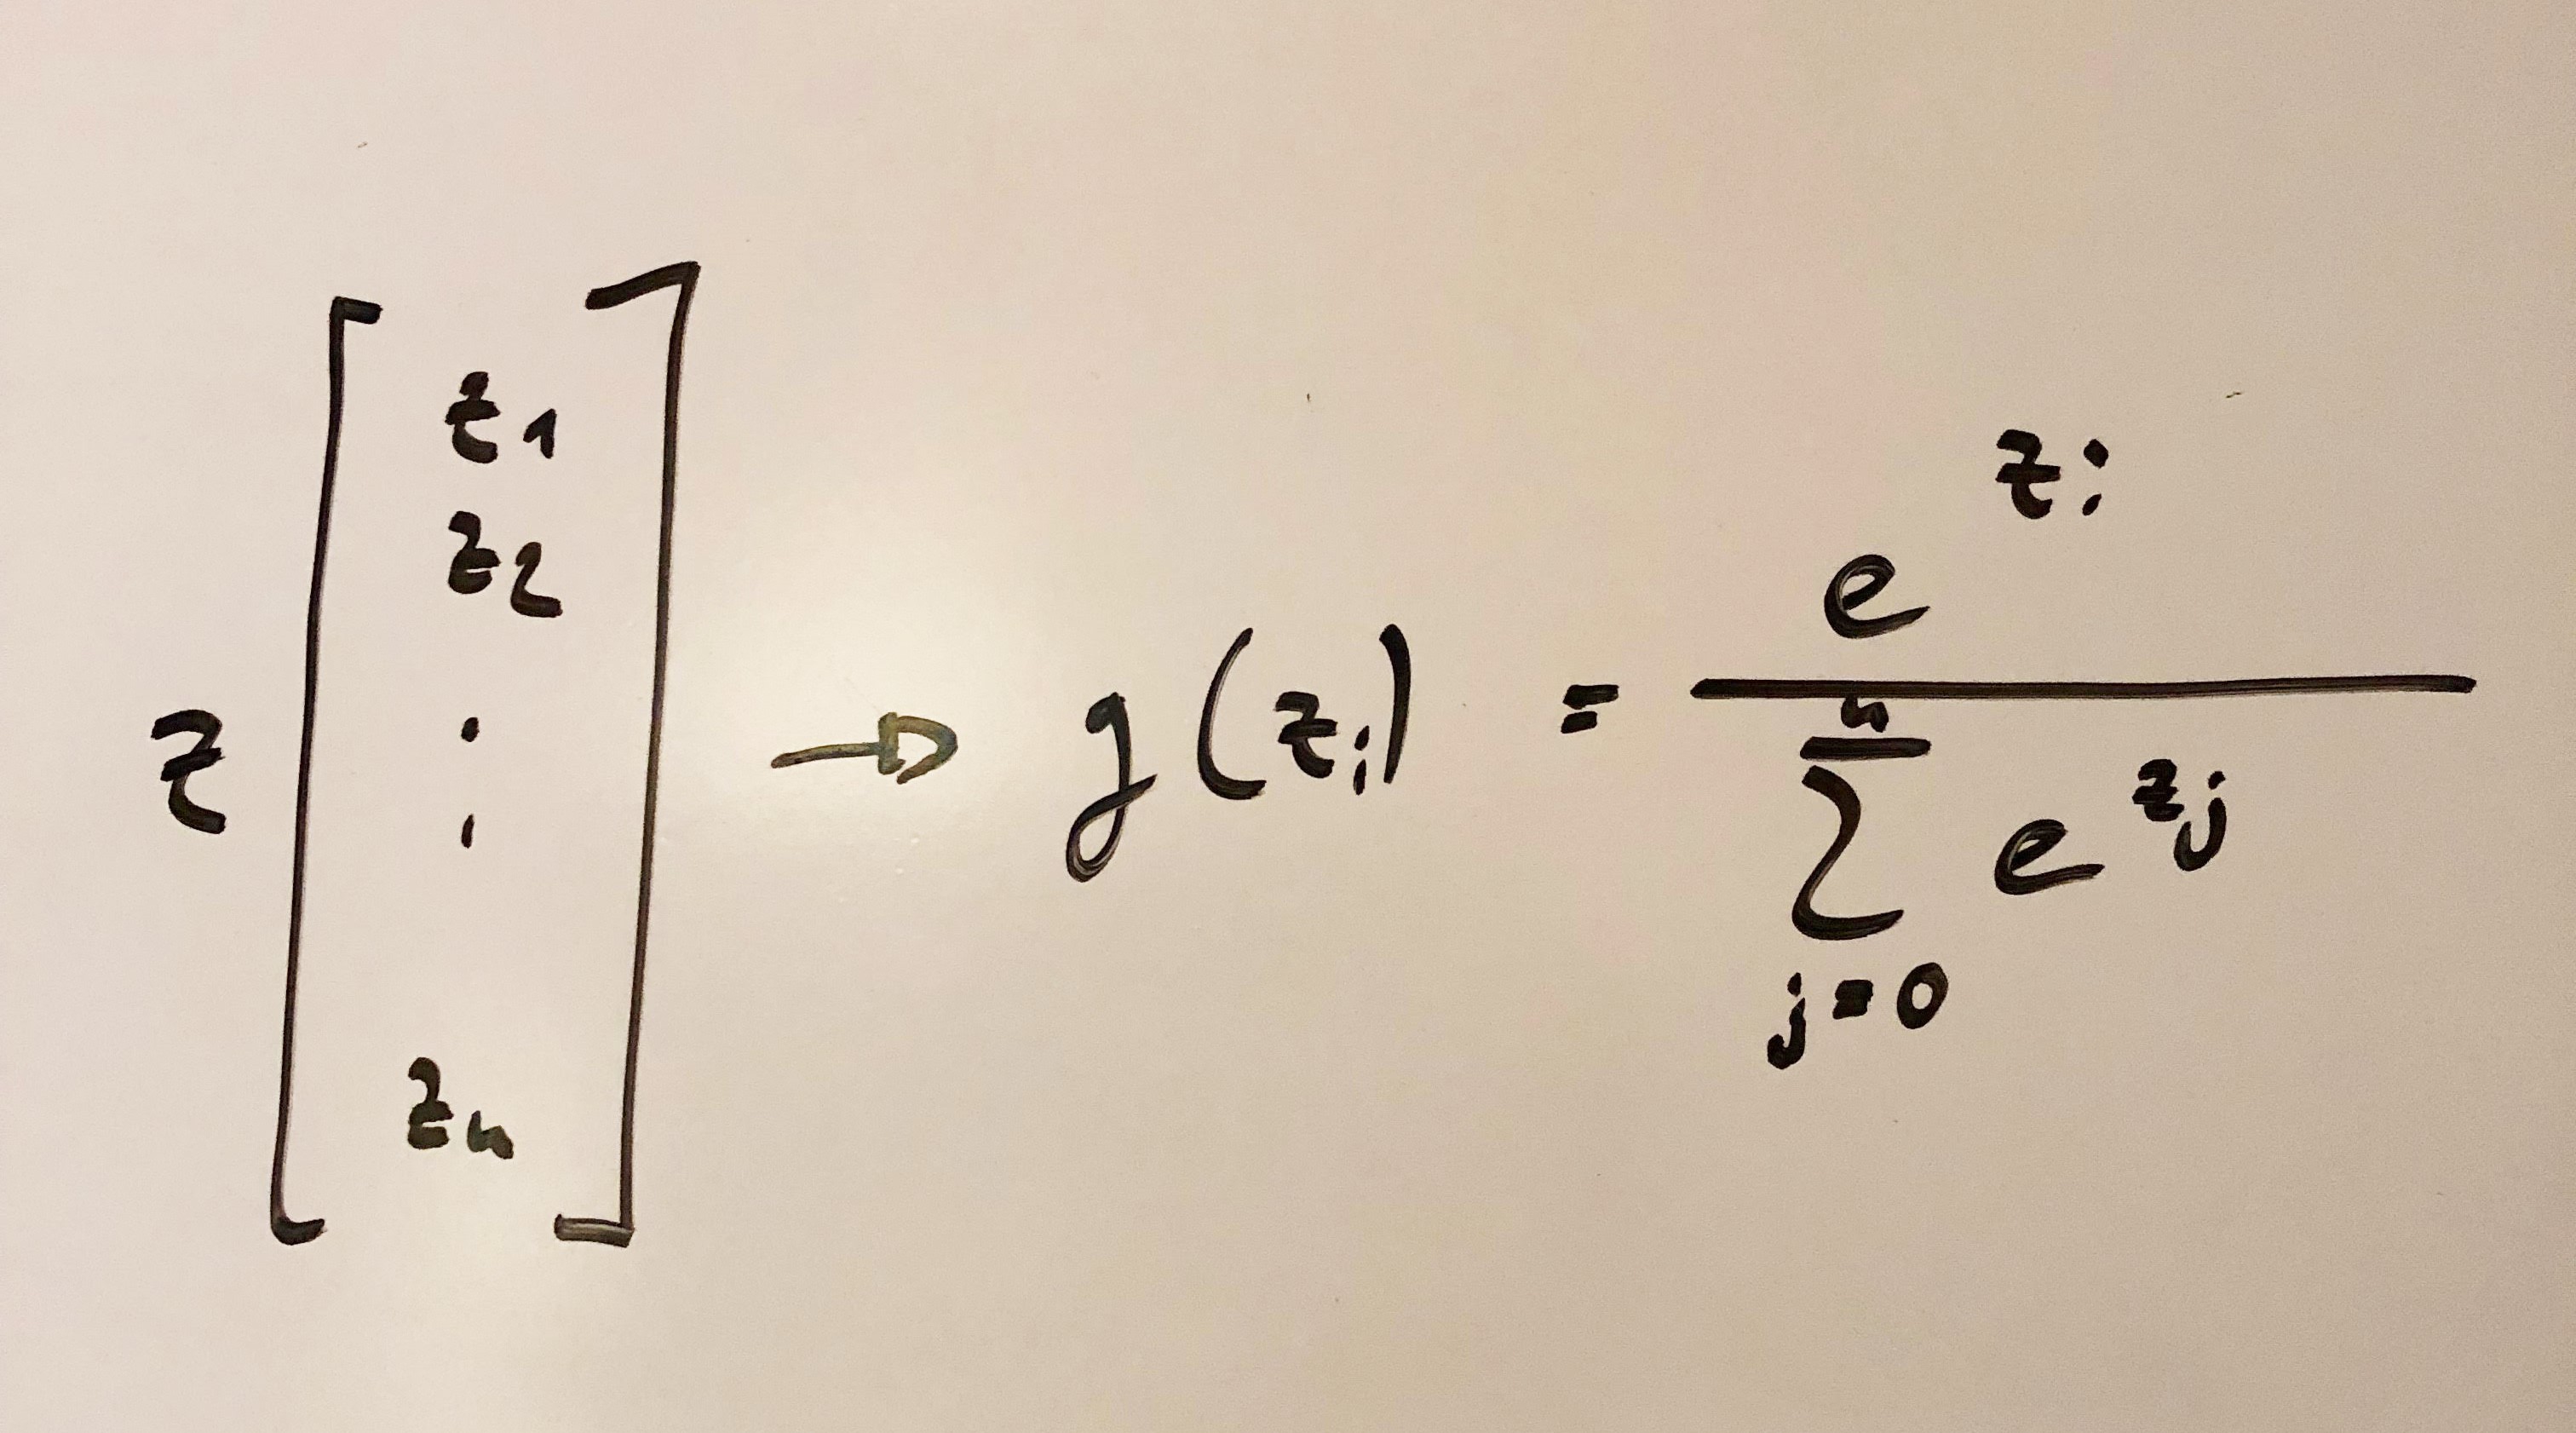 z [ z₁
z₂
⋮
zₙ ] → g(zᵢ) = e^{zᵢ} / ∑_{j=0}^{n} e^{z_j}